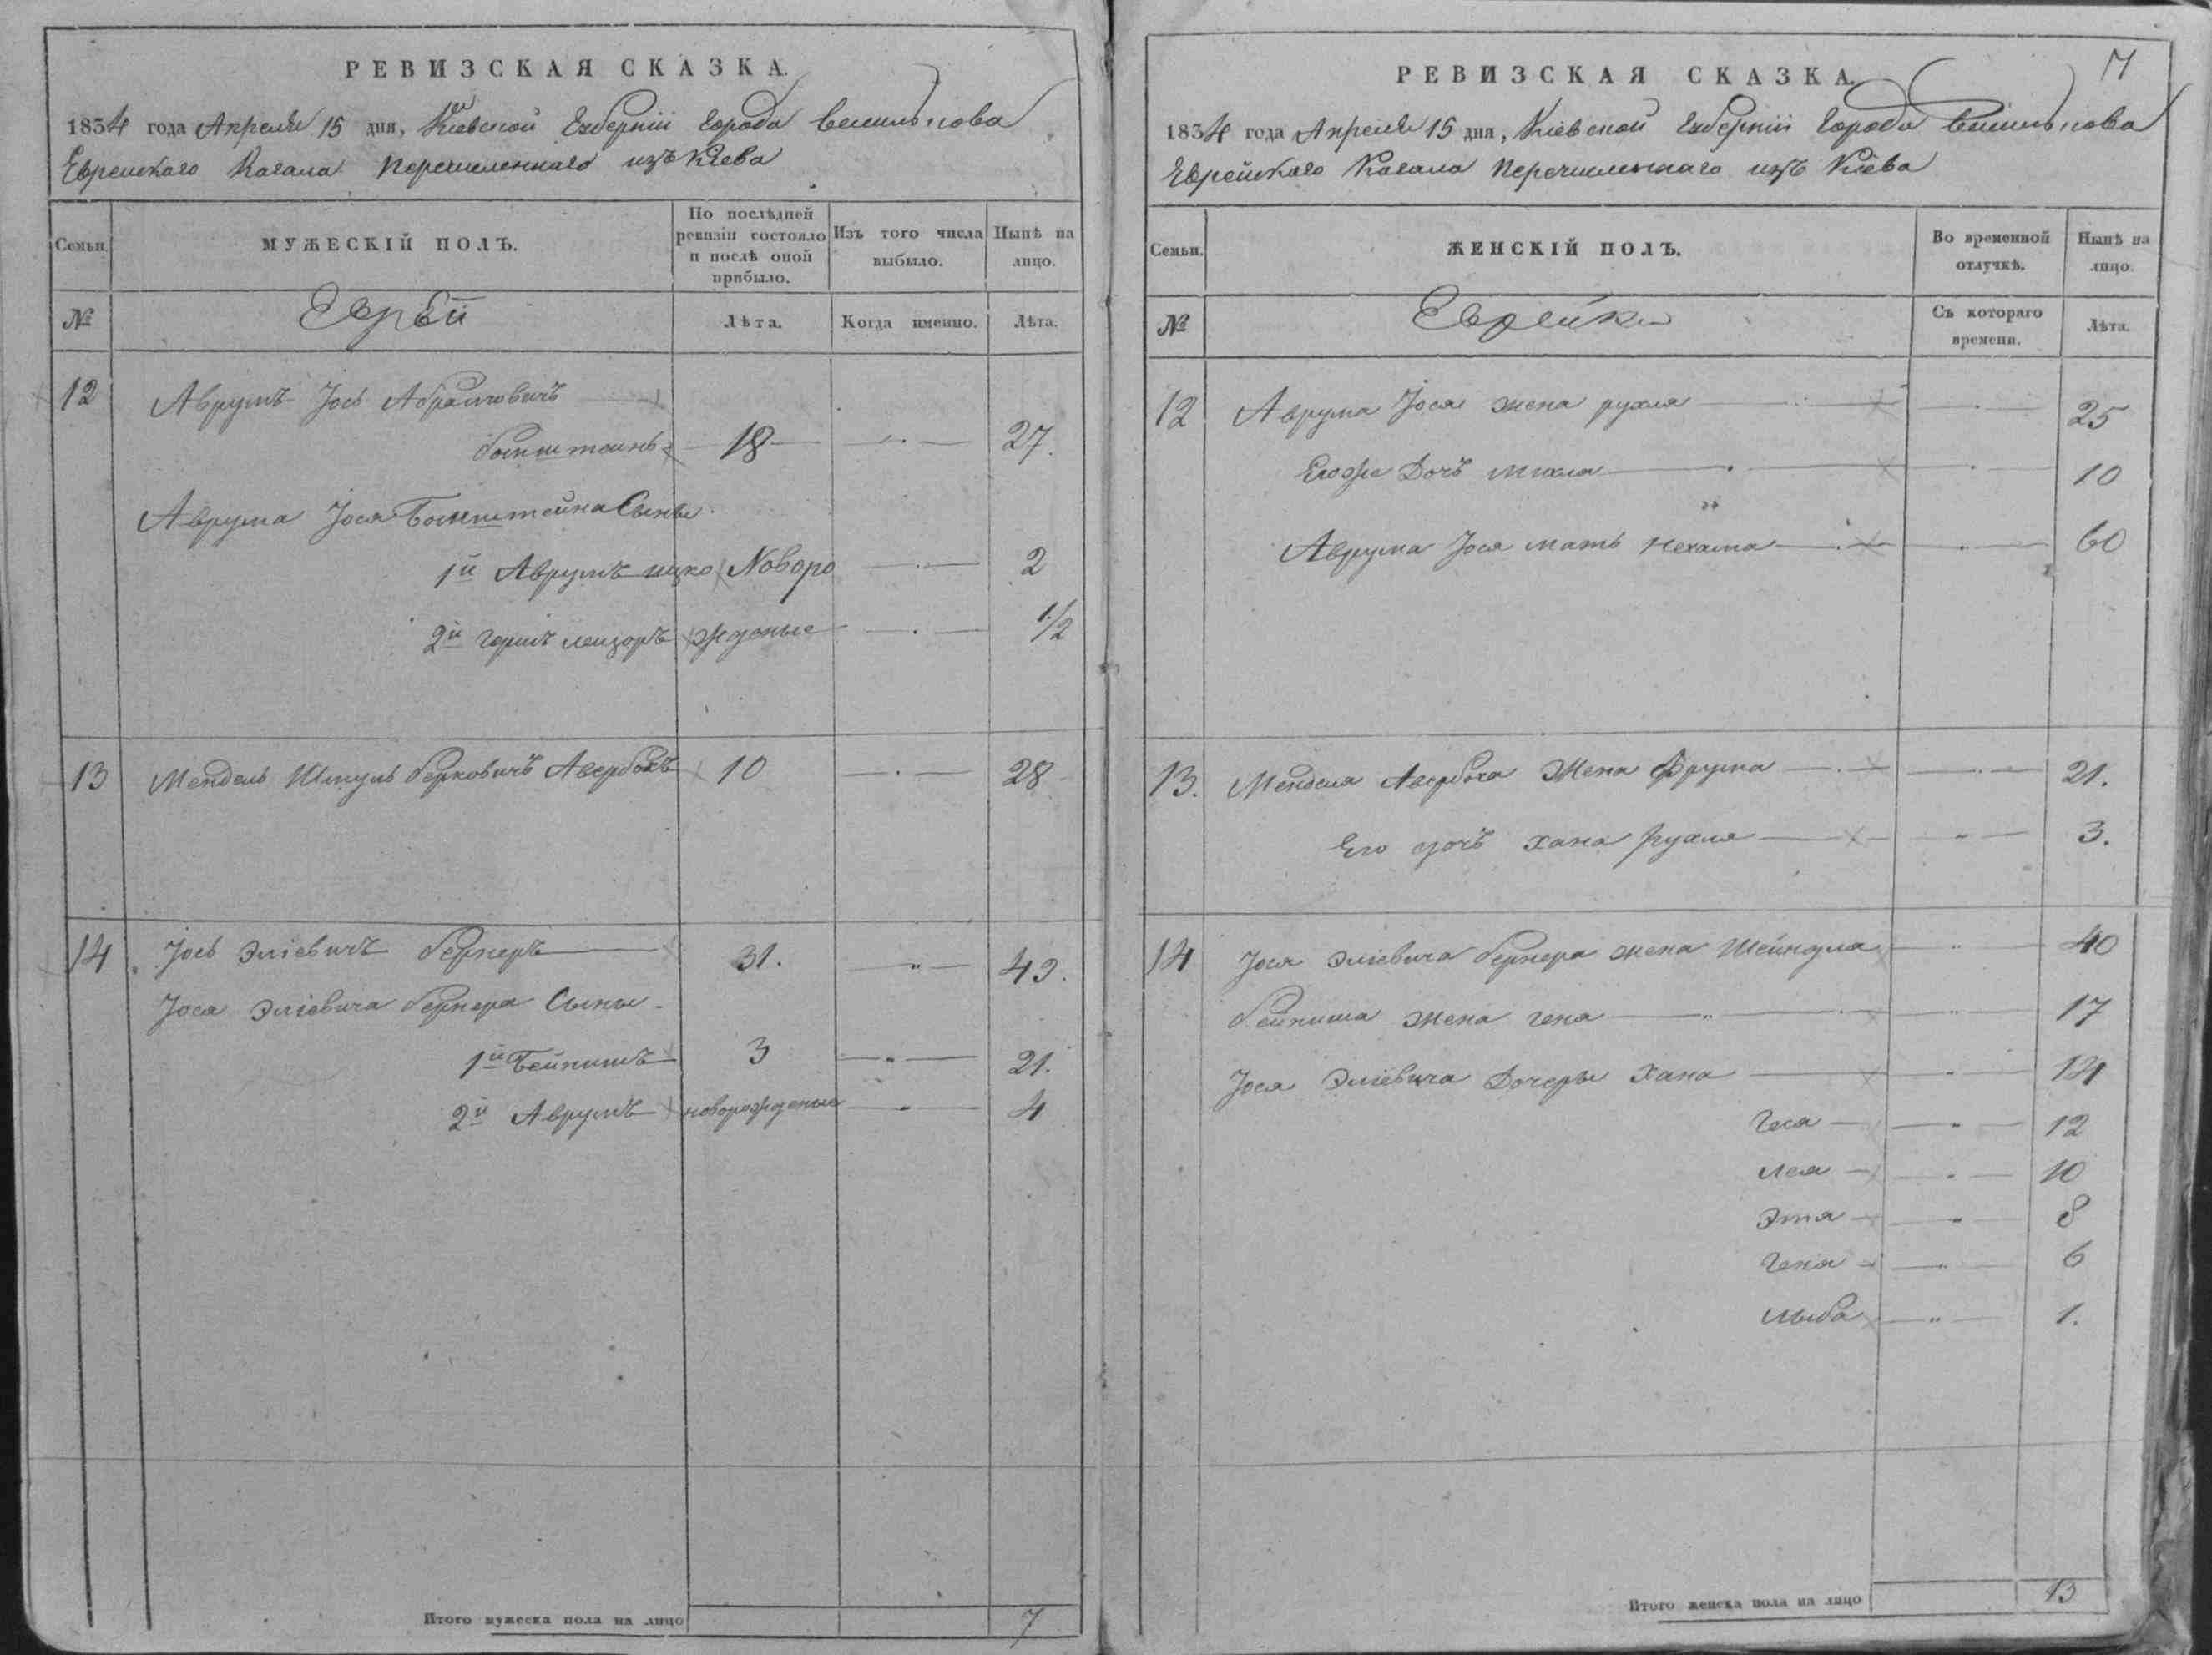 РЕВИЗСКАЯ СКАЗКА.
1834 года Апреля 15 дня, Кіевской Губерніи Города Василькова
Еврейскаго Кагала Перечисленнаго изъ Кіева
Семьи.
МУЖЕСКІЙ ПОЛЪ.
По послѣдней ревизіи состояло и послѣ оной прибыло.
Изъ того числа выбыло.
Нынѣ на лицо.
№
Еврѣи
Лѣта.
Когда именно.
Лѣта.
12 Аврумъ Іось Абрамовичъ
18 27.
Аврума Іося Сыны
1й Аврумъ ицко Новоро 2
2й Гершъ лейзоръ жденые 1/2
13 Мендель Шмуль берковичъ Авербохъ 10 28
14 Іось Эліевичъ бернеръ 31. 49.
Іося Эліевича бернера Сыны
1й Бейнишъ 3 21.
2й Аврумъ новорожденые 4
Итого мужеска пола на лицо 7
7
РЕВИЗСКАЯ СКАЗКА.
1834 года Апреля 15 дня, Кіевской Губерніи Города Василькова
Еврейскаго Кагала Перечисленнаго изъ Кіева
Семьи.
ЖЕНСКІЙ ПОЛЪ.
Во временной отлучкѣ.
Нынѣ на лицо.
№
Еврейки
Съ котораго времени.
Лѣта.
12 Аврума Іося жена рухля 25
Егоже Дочъ михля 10
Аврума Іося мать нехама 60
13. Менделя Авербоха Жена Фрума 21.
Его дочъ хана рухля 3.
14 Іося Эліевича бернера жена Шейндля 40
бейниша жена гена 17
Іося Эліевича Дочеры Хана
Геся 12
Лея 10
Эта 8
Геня 6
Лыба 1.
Итого женска пола на лицо 13